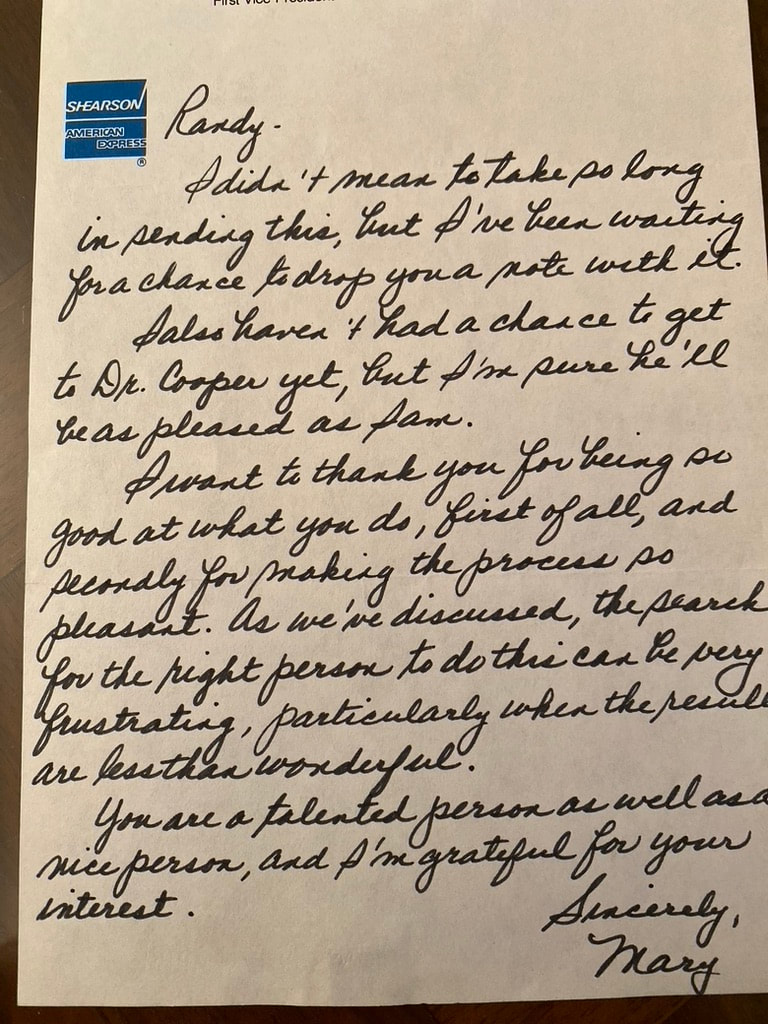 First Vice President
SHEARSON
AMERICAN
EXPRESS
®
Randy-
I didn't mean to take so long
in sending this, but I've been waiting
for a chance to drop you a note with it.
I also haven't had a chance to get
to Dr. Cooper yet, but I'm sure he'll
be as pleased as I am.
I want to thank you for being so
good at what you do, first of all, and
secondly for making the process so
pleasant. As we've discussed, the search
for the right person to do this can be very
frustrating, particularly when the results
are less than wonderful.
You are a talented person as well as a
nice person, and I'm grateful for your
interest.
Sincerely,
Mary